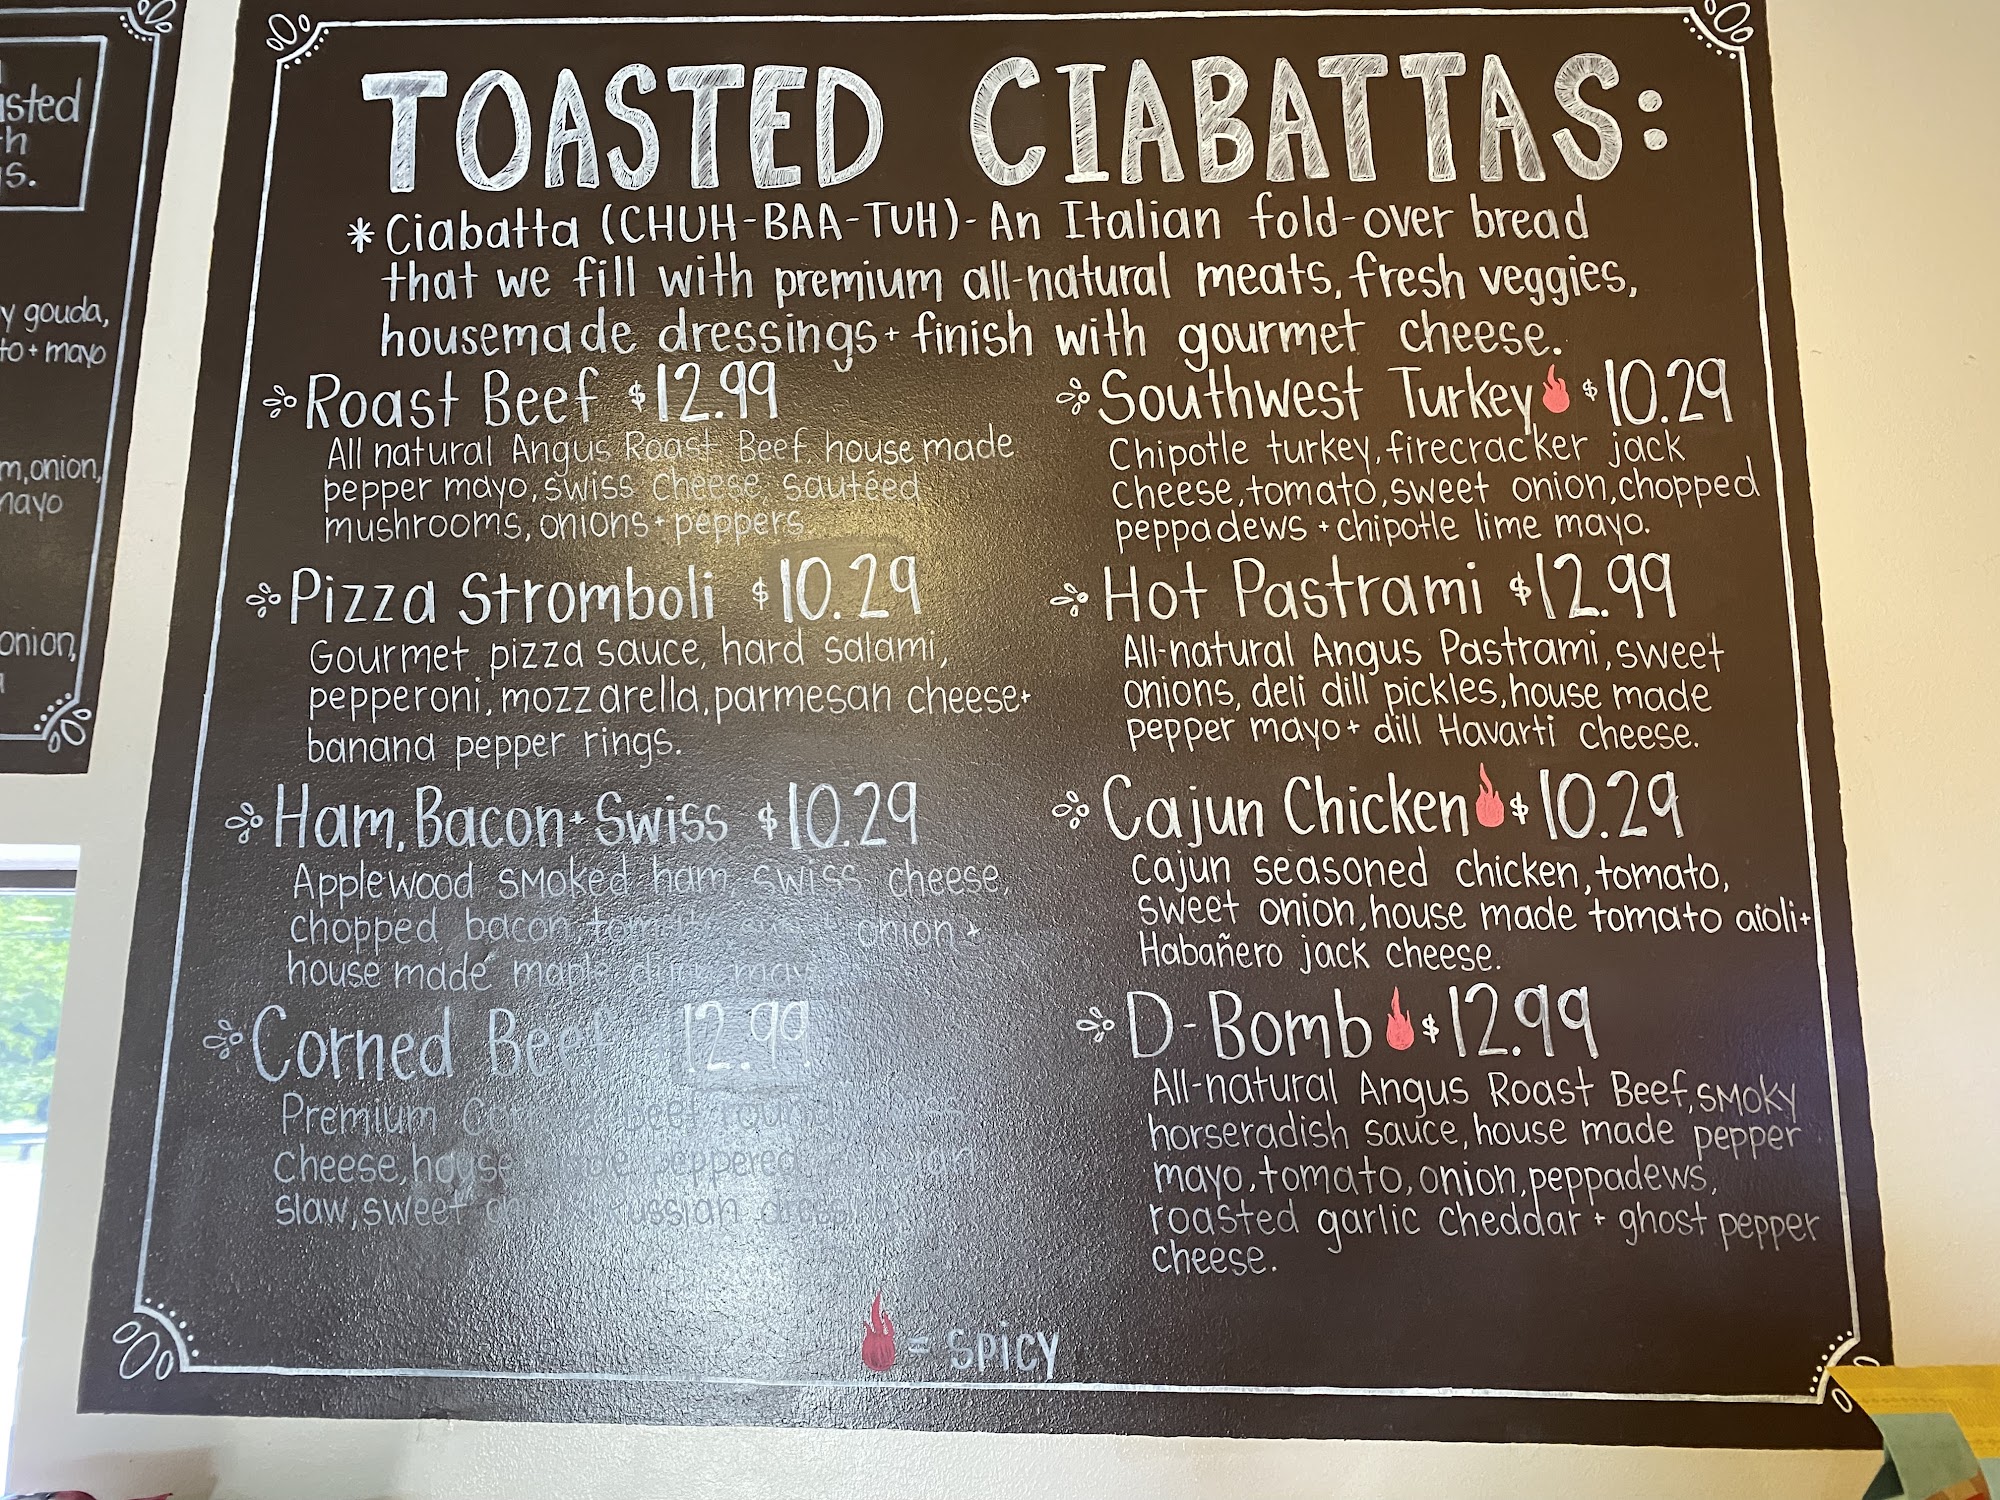 sted
h
s.
y gouda,
to + mayo
m, onion,
mayo
onion,
TOASTED CIABATTAS:
*Ciabatta (CHUH-BAA-TUH)- An Italian fold-over bread
that we fill with premium all-natural meats, fresh veggies,
housemade dressings + finish with gourmet cheese.
Roast Beef $12.99
All natural Angus Roast Beef, house made
pepper mayo, swiss cheese, sautéed
mushrooms, onions + peppers
Pizza Stromboli $10.29
Gourmet pizza sauce, hard salami,
pepperoni, mozzarella, parmesan cheese +
banana pepper rings.
Ham, Bacon + Swiss $10.29
Applewood smoked ham, swiss cheese,
chopped bacon, tomato, sweet onion +
house made maple dijon mayo
Corned Beef 12.99
Premium Corned beef round
cheese, house made peppered
slaw, sweet russian
Southwest Turkey $10.29
Chipotle turkey, firecracker jack
cheese, tomato, sweet onion, chopped
peppadews + chipotle lime mayo.
Hot Pastrami $12.99
All-natural Angus Pastrami, sweet
onions, deli dill pickles, house made
pepper mayo + dill Havarti cheese.
Cajun Chicken $10.29
Cajun seasoned chicken, tomato,
sweet onion, house made tomato aioli +
Habañero jack cheese.
D-Bomb $12.99
All-natural Angus Roast Beef, smoky
horseradish sauce, house made pepper
mayo, tomato, onion, peppadews,
roasted garlic cheddar + ghost pepper
cheese.
= SPICY